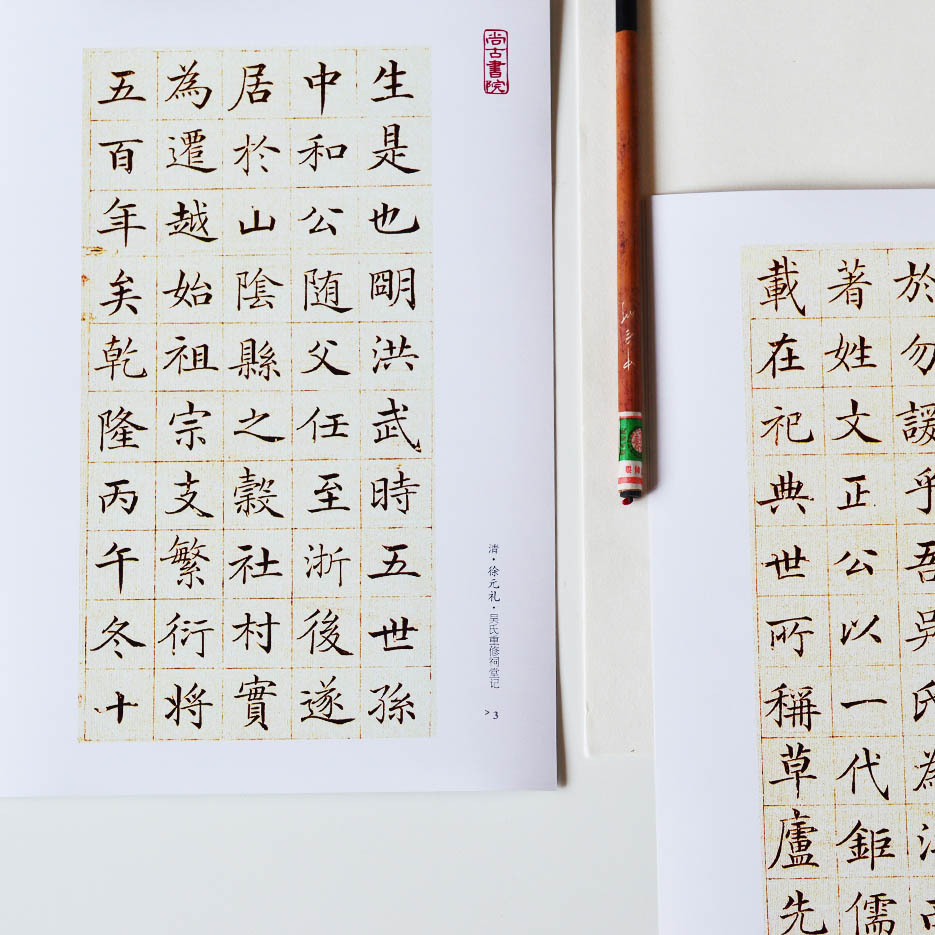 尚古書院
生是也朙洪武時五世孫
中和公随父任至浙後遂
居於山陰縣之穀社村實
為遷越始祖宗支繁衍將
五百年矣乾隆丙午冬十
清·徐元礼·吴氏重修祠堂记
> 3
於勿諼乎吾吳氏為江
著姓文正公以一代鉅儒
載在祀典世所稱草廬先